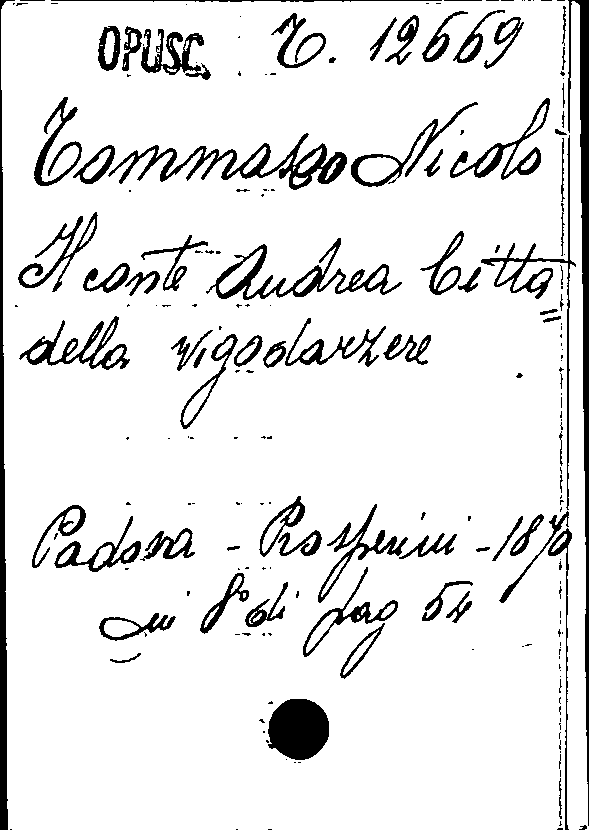 OPUSC. T. 12669
Tommaseo Nicolò
Il conte Andrea Citta=
della Vigodarzere
Padova - Prosperini - 1870
in 8° di pag 54